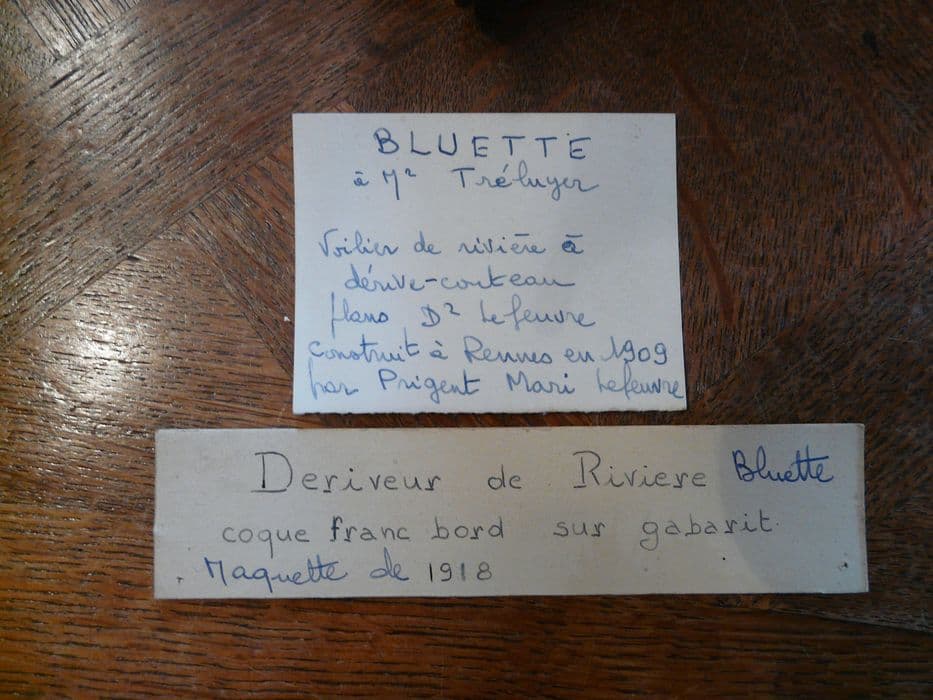 BLUETTE
à Mr Tréluyer
Voilier de rivière à
dérive-couteau
plans Dr Lefeuvre
Construit à Rennes en 1909
par Prigent Mari Lefeuvre
Deriveur de Riviere Bluette
coque franc bord sur gabarit
Maquette de 1918